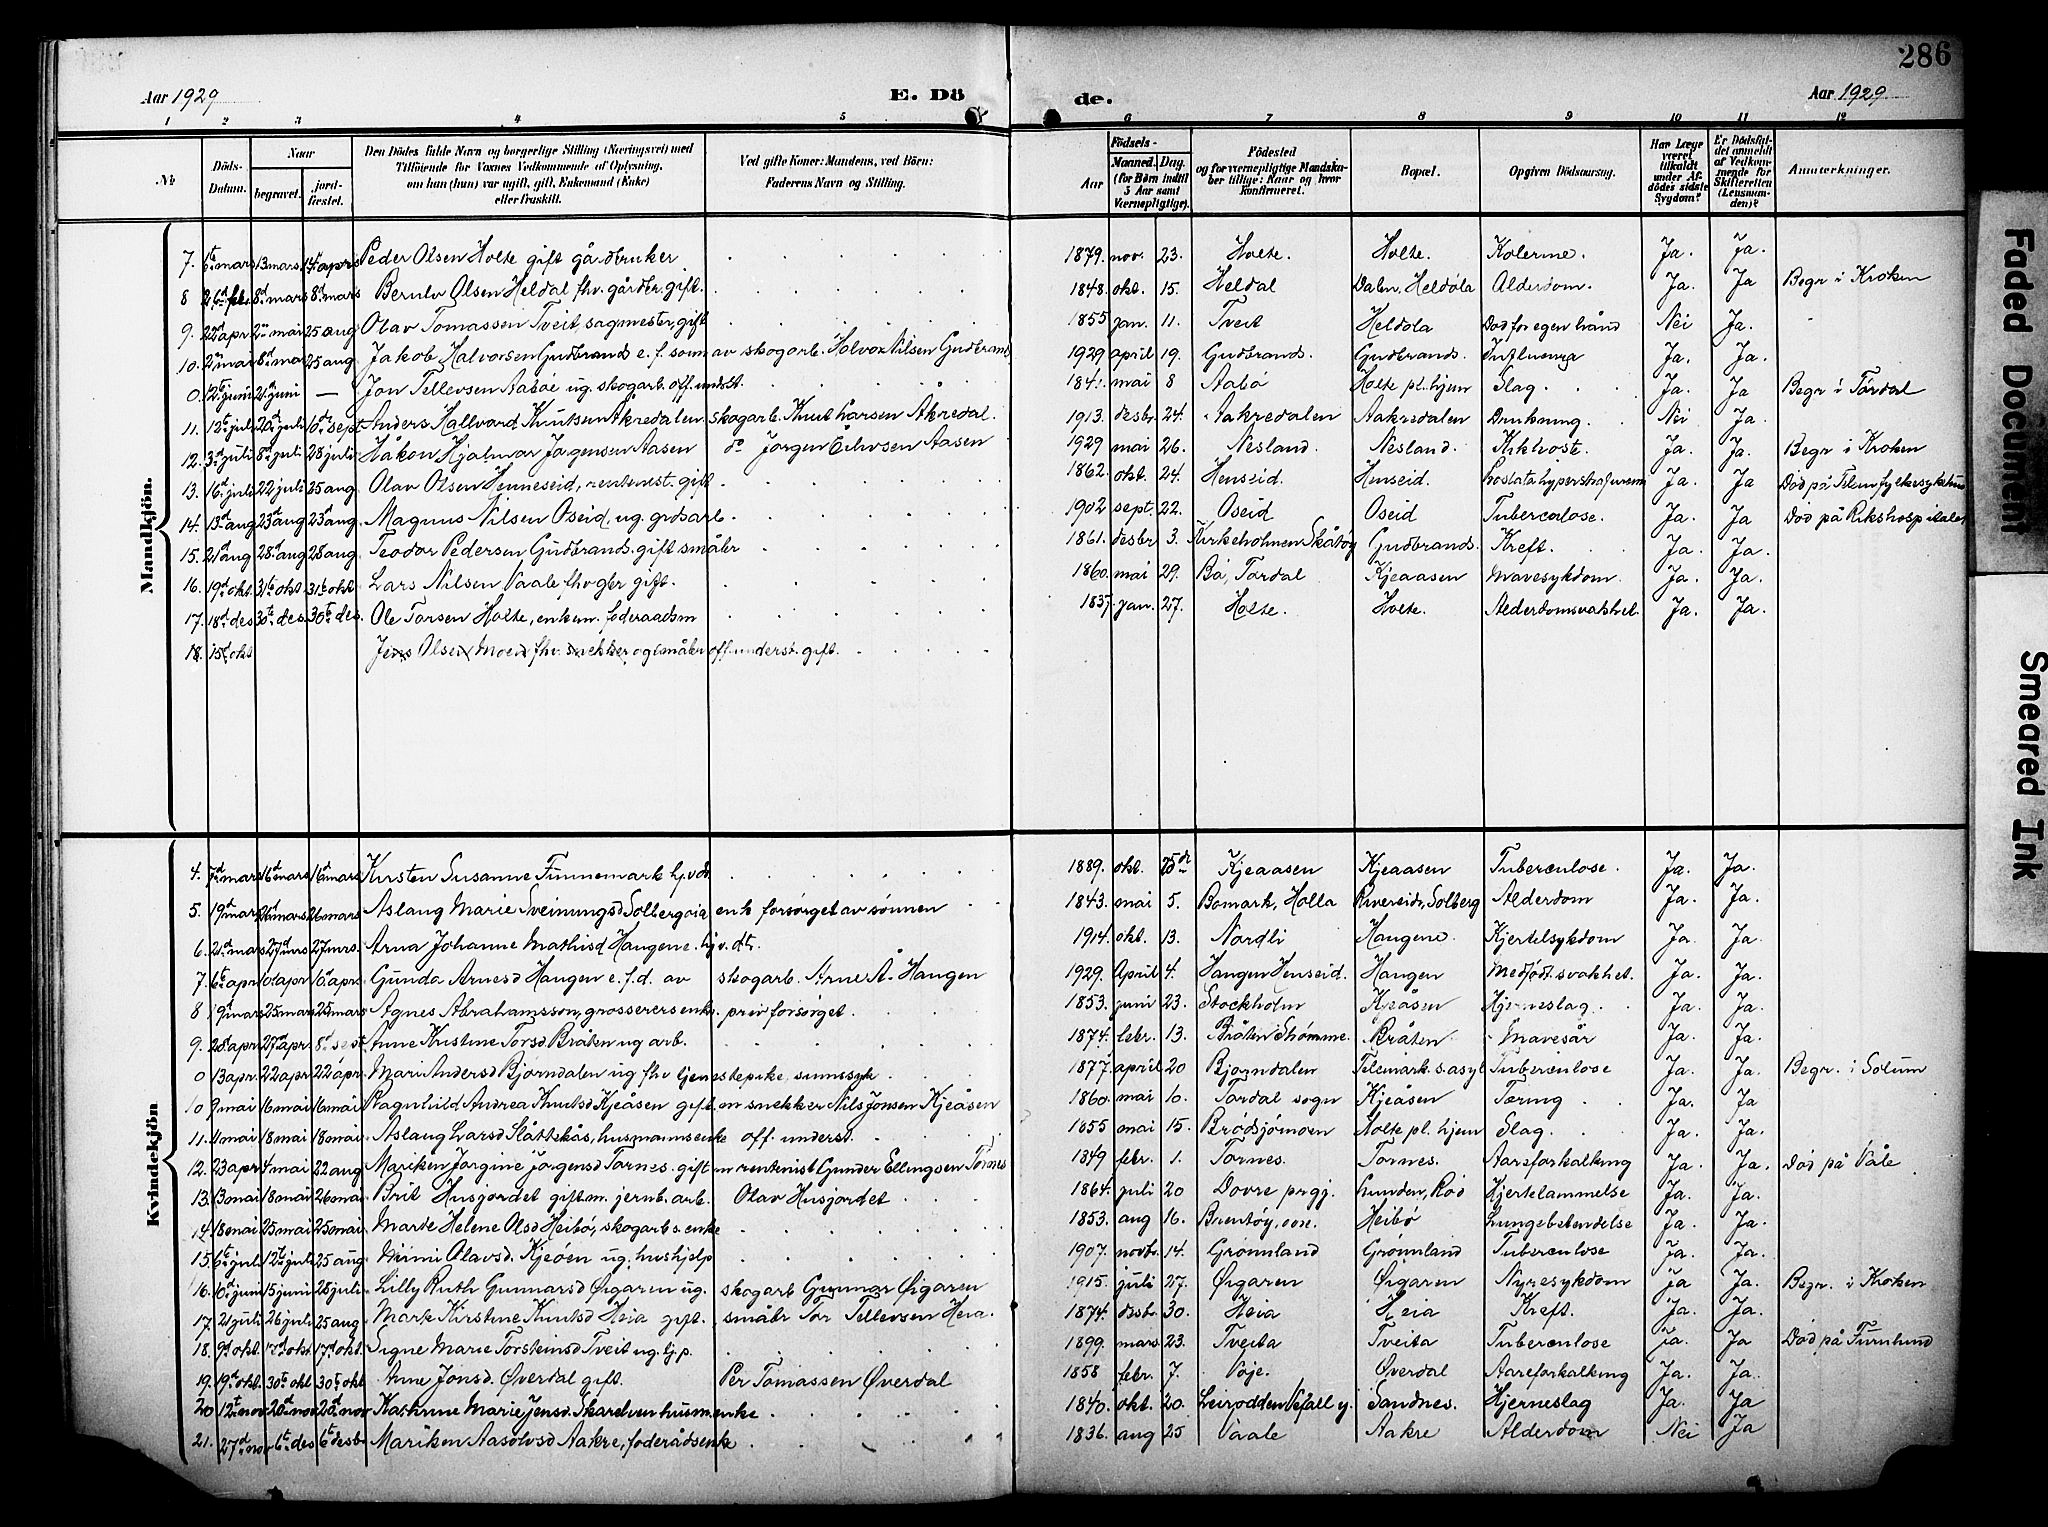 286
Aar 1929 E. Dö de. Aar 1929
1 2 3 4 5 6 7 8 9 10 11 12
No. Döds-Datum. Naar begravet. jordfæstet. Den Dödes fulde Navn og borgerlige Stilling (Næringsvei) med Tilföiende for Voxnes Vedkommende af Oplysning, om han (hun) var ugift, gift, Enkemand (Enke) eller fraskilt. Ved gifte Koner: Mandens, ved Börn: Faderens Navn og Stilling. Födsels- Aar Maaned. Dag. (for Börn indtil 5 Aar samt Værnepligtige). Födested og for værnepligtige Mandskaber tillige: Naar og hvor Konfirmeret. Bopæl. Opgiven Dödsaarsag. Har Læge været tilkaldt under Afdödes sidste Sygdom? Er Dödsfaldet anmeldt af Vedkommende for Skifteretten (Lensmanden)? Anmærkninger.
Mandkjön.
7. 6te mars 13 mars 14 apr Peder Olsen Holte gift gårdbruker 1879. nov. 23. Holte. Holte. Ja. Ja.
8 26d feb. 8d mars 8d mars Bernlv Olsen Heldal fhv. gårdbr. gift. 1848. okt. 15. Heldal Dalen, Heldøla Alderdom. Ja. Ja Begr i Kroken
9. 22d apr 2n mai 25 aug Olav Tomassen Tveit, sagmester, gift 1855 jan. 11. Tveit Heldøla Død for egen hånd Nei Ja.
10. 2n mai 6t mai 25 aug Jakob Halvorsen Gudbrands e. f. sønn av skogarb. Halvor Nilsen Gudbrands 1929 april 19. Gudbrands. Gudbrands. Influensa Ja. Ja.
0. 12t juni 21 juni — Jon Tellevsen Aabøe ug. skogarb. off. underst. mai 8 Aabø Holte pl. hjem Slag. Ja. Ja Begr i Tørdal
11. 12t juli 20d juli 10d sept Anders Hallvord Knutsen Åkredalen skogarb. Knut Larsen Åkredal. 1913. desbr 24. Aakredalen Aakredalen Drukning. Nei Ja.
12. 3d juli 8d juli 28 juli Håkon Hjalmar Jørgensen Aasen do Jørgen Eilevsen Aasen 1929 mai 26. Nesland. Nesland. Kikhoste. Ja. Ja. Begr i Kroken
13. 16d juli 22 juli 25 aug Olav Olsen Henneseid, rentenist. gift 1862. okt. 24. Henseid. Henseid. Ja. Ja Død på Telem fylkessykehus
14. 13d aug 23d aug 23d aug Magnus Nilsen Oseid, ug. grdsarb. 1902 sept. 22. Oseid Oseid Tuberculose. Ja. Ja Død på Rikshospitalet
15. 21d aug 28d aug 28 aug Teodor Pedersen Gudbrands. gift småbr 1861. desbr 3. Kirkeholmen Skåtøy Gudbrands. Kreft. Ja. Ja.
16. 19d okt 31te okt 31te okt Lars Nilsen Vaale fhv gbr gift. 1860. mai 29. Bø, Tørdal Kjeaasen Mavesykdom. Ja. Ja.
17. 18d des 30te des 30te des. Ole Torsen Holte, enkem. føderaadsm 1837. jan. 27. Holte. Holte. Alderdomssvakhet. Ja. Ja.
18. 15d okt Jens Olsen Moen fhv. snekker og småbr off. underst. gift.
Kvindekjön
4. 7d mars 16d mars 16d mars Kirsten Susanne Finnemark hj.v.dt. 1889. okt. 25de Kjeaasen Kjeaasen Tuberculose. Ja. Ja.
5. 19d mars 26d mars 26 mars Aslaug Marie Sveinungsd Solbergvia enk. forsørget av sønnen 1843. mai 5. Bomark, Holla Riverside, Solberg Alderdom Ja. Ja.
6. 21d mars 27d mrs 27 mrs. Arna Johanne Mathisd Haugene. hjv. dtr. 1914. okt. 13. Nordli Haugene. Kjertelsykdom Ja. Ja.
7. 6te apr 10d apr 10d apr. Gunda Arnesd Haugen e. f. d. av skogarb. Arne A. Haugen 1929. April 4. Haugen Henseid. Haugen Medfødt svakhet. Ja. Ja.
8 19 mars 25 mars 25 mars Agnes Abrahamsson, grosserers enke. priv forsørget. 1853. juni 23. Stockholm Kjeåsen Hjerneslag. Ja. Ja.
9. 20d apr 27d apr. 8d sept Anne Kristine Torsd Bråten ug arb. 1874. febr. 13. Bråten Strømme. Bråten Mavesår Ja. Ja.
0 13 apr 22 apr 22 apr. Mari Andersd Bjørndalen ug fhv tjenestepike, sinnssyk 1877. april 20 Bjørndalen Telemark s. asyl Tuberculose Ja. Ja. Begr. i Solum
10 7 mai 16 mai 16 mai Ragnhild Andrea Knutsd Kjeåsen gift. m snekker Nils Jonsen Kjeåsen 1860. mai 10. Tørdal sogn Kjeåsen Tæring Ja. Ja
11. 11 mai 18 mai 18 mai. Aslaug Larsd Slåttekås, husmannsenke off. underst. 1855 mai 15. Brødsjømoen Holte pl. hjem Slag. Ja. Ja.
12. 23 apr 4 mai 22 aug Mariken Jørgine Jørgensd Tornes. gift m rentenist Gunder Ellingsen Tornes 1849 febr. 1. Tornes. Tornes. Aareforkalkning Ja. Ja. Død på Vale
13. 13 mai 18 mai 26 mai Brit Husjordet gift m. jernb. arb. Olav Husjordet 1864. juli 20 Dovre prgj. Lunden, Rød Hjertelammelse Ja. Ja.
14. 18 mai 25 mai 25 mai Marie Helene Olsd Heibø, skogarbs. enke 1853. aug 16. Heibø Lungebetendelse Ja. Ja.
15. 6te juli 12te juli 25 aug Mimi Olavsd. Kjeøen ug. hushjelp 1907. novb. 14. Grønnland Grønnland Tuberculose Ja. Ja.
16. 10d juni 15 juni 28 juli Lilly Ruth Gunnarsd Øigaren ug. skogarb Gunnar Øigaren 1915. juli 27. Øigaren Øigaren Nyresykdom Ja Ja. Begr. i Kroken
17. 21 juli 26 juli 25 aug Kirstine Knutsd Heia gift. småbr Tor Tellevsen Heia. 1874. desbr. 30. Heia Heia Kreft. Ja. Ja.
18. 9d okt. 17d okt 17d okt. Signe Marie Torsteinsd Tveit ug. hj.p. 1899. mars 23. Tveita Tveita Tuberculose Ja. Ja Død på Furulund
19. 19d okt. 30te okt 30te okt Anne Jonsd. Øverdal gift. Per Tomassen Øverdal 1858 febr. 7. Voje. Øverdal Aareforkalkning Ja. Ja
20 12te nov 20d nov 20d nov Kathrine Marie Jensd. Skarelven husm. enke 1840. okt. 20. Leirodden Vefall y. Sandnes. Hjerneslag Ja. Ja.
21. 27d nov 6te des 6te desb. Mariken Aasolvsd Aakre, føderådsenke 1836. aug 25 Vaale Aakre Alderdom Nei Ja
Faded Document
Smeared Ink